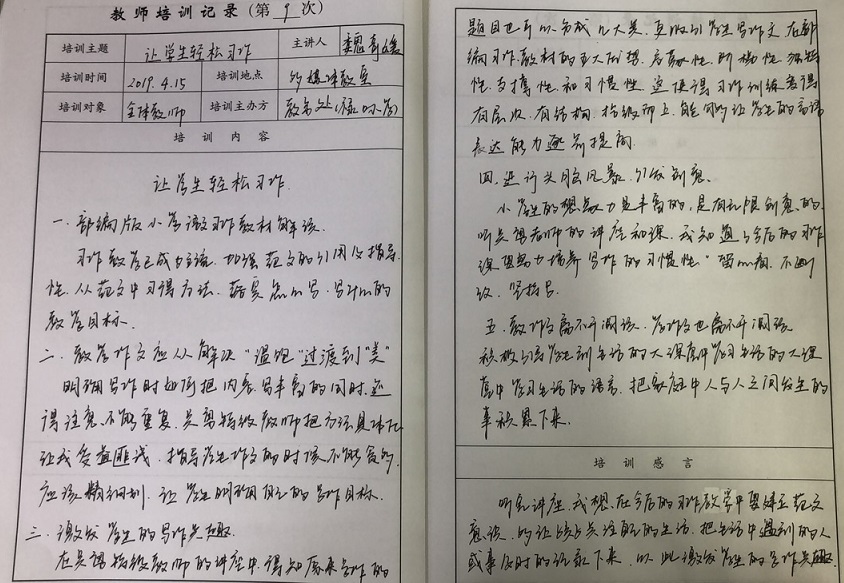 教师培训记录(第 9 次)
培训主题 让学生轻松习作 主讲人
培训时间 2019.4.15 培训地点 多媒体教室
培训对象 全体教师 培训主办方 教务处
培 训 内 容
让学生轻松习作.
一.部编版小学语文习作教材解读.
习作教学已成为主流.加强范文的引用及指导
性.从范文中习得方法.
教学目标.
二.教学作文应从解决"温饱"过渡到"美"
明确写作时如何把内容写丰富的同时,还
得注意不能重复.吴勇特级教师把方法具体化
让我受益匪浅.指导学生作文的时候不能含糊.
应该精细刻.让学生明确自己的写作目标.
三.激发学生的写作兴趣.
在吴勇特级教师的讲座中.得知原来写作的
题目也可以分成几大类.更吸引学生写作文.在部
编习作教材的五大优势.
性.支撑性.和习惯性.这使得习作训练变得
有层次.有结构.能够让学生的言语
表达能力逐步提高.
四.进行头脑风暴.引发创意.
小学生的想象力是丰富的,是有无限创意的.
听吴勇老师的讲座和课.我知道了今后的习作
课要努力培养写作的习惯性."
改.
五.教作文离不开阅读.学作文也离不开阅读
积极引导学生到生活的大课堂中学习生活的大课
堂中学习生活的语言.把家庭中人与人之间发生的
事积累下来.
培 训 感 言
听完讲座.我想.在今后的习作教学中要建立范文
意识.多让孩子关注自己的生活.把生活中遇到的人
或事及时的记录下来.以此激发学生的写作兴趣.